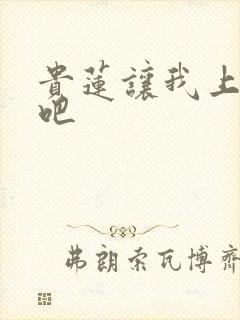 貴蓮讓我上
吧
弗朗索瓦博齊